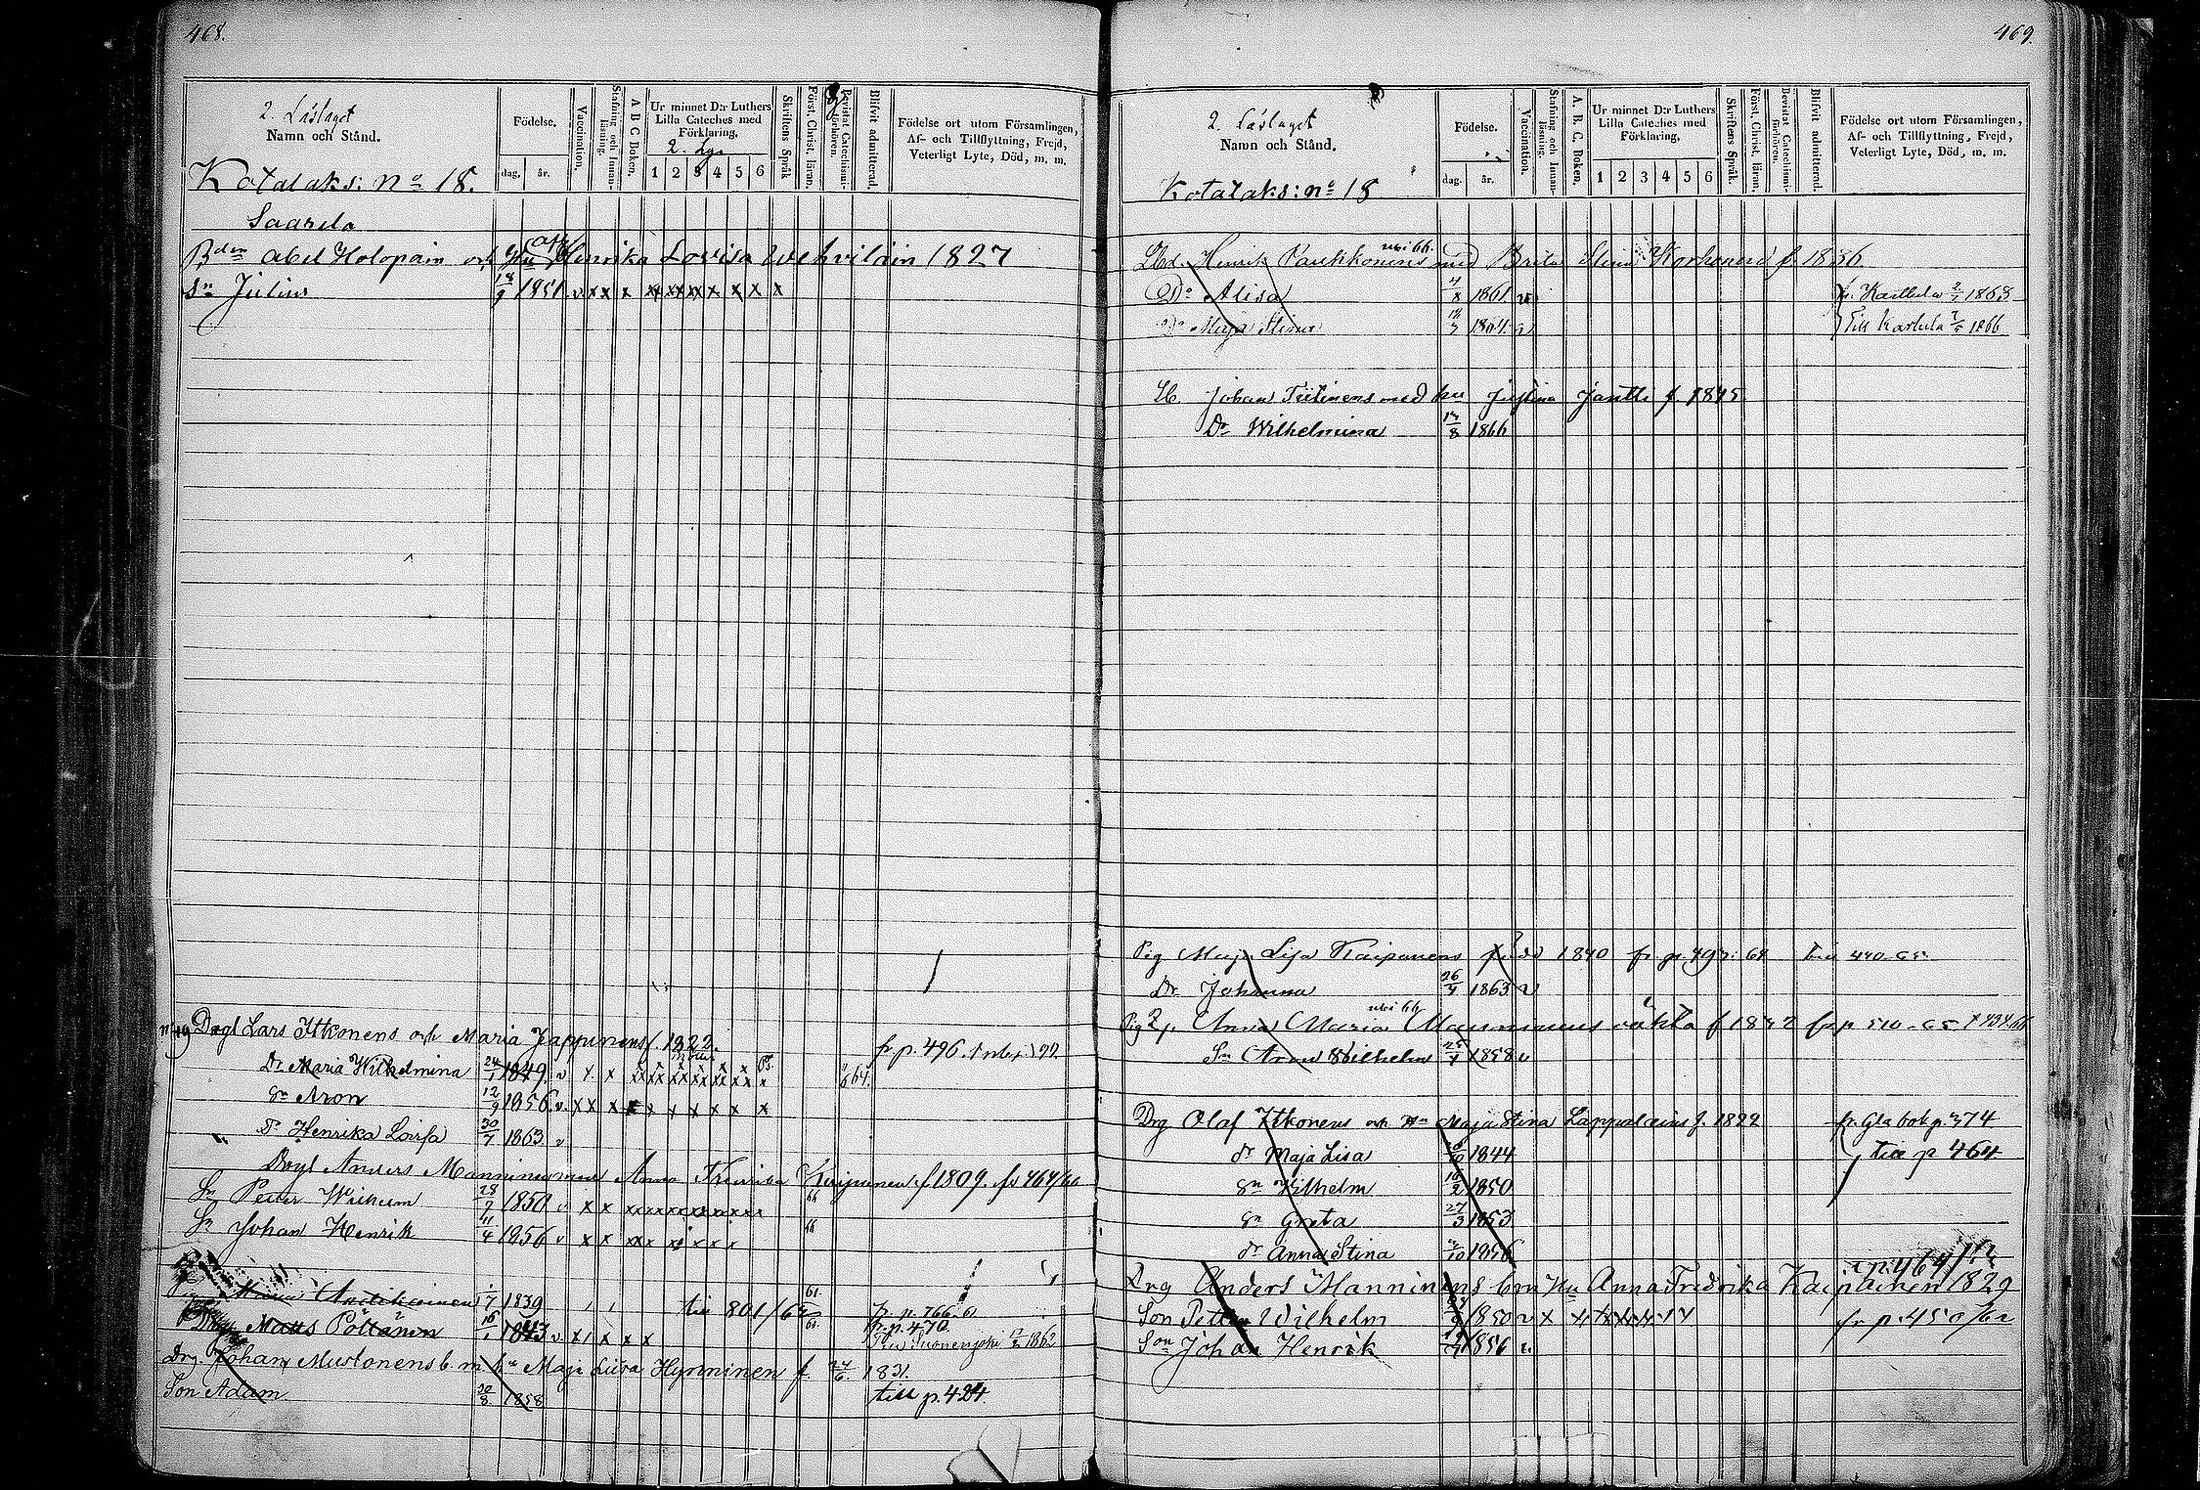 468.
2. Läslaget
Namn och Stånd.
Födelse.
dag. år.
Vaccination.
Stafning och Innanläsning.
A B C Boken.
Ur minnet D:r Luthers
Lilla Cateches med
Förklaring.
1 2 3 4 5 6
Skriftens Språk
Först. Christ. läran.
Bevistat Catechismiförhören.
Blifvit admitterad.
Födelse ort utom Församlingen,
Af- och Tillflyttning, Frejd,
Veterligt Lyte, Död, m. m.
Kotalaks: no 18.
Saarela
Abel Holopain och Hu Henrika Lovisa Wehviläin 1827
Sn Julius 18/9 1851 v x x x x x x x x x x x
no 19 Drgl Lars Itkonens och Maria Jappinens f. 1822.
fr p. 496.
Dr Maria Wilhelmina 24/1 1849. v x x
Sn Aron 12/9 1856. v. x x x x x x x x x x
Dr Henrika Lovisa 30/7 1863 v
Drgl Anders Manninen Anna Fredrika f. 1809. fr 464/66
Sn Petter Wilhelm 28/9 1850 v x x 66
Sn Johan Henrik 11/4 1856 v x x x x x 66
1839 till 801/62 p. 766.
Matts Pöllänen 16/1 1843 v x x x x fr. p. 470
1862
Drg. Johan Mustonens b. m. hu Maja Lisa Hynninen f. 24/6 1831.
Son Adam 30/8 1858 till p. 424.
469.
2. Läslaget
Namn och Stånd.
Födelse.
dag. år.
Vaccination.
Stafning och Innanläsning.
A. B. C. Boken.
Ur minnet D:r Luthers
Lilla Cateches med
Förklaring.
1 2 3 4 5 6
Skriftens Språk.
Först. Christ. läran.
Bevistat Catechismiförhören.
Blifvit admitterad.
Födelse ort utom Församlingen,
Af- och Tillflyttning, Frejd,
Veterligt Lyte, Död, m. m.
Kotalaks: no 18
Henrik Paukkonens med Brita Stina Korhonens f. 1836
Dr Alisa 1861 v fr. Karttula 1863
Dr Maja Stina 1864 v Till Karttula 1866
Lb. Johan Tiitinens med hu Justina Jantti f. 1845
Dr Wilhelmina 13/8 1866
Pig Maja Lisa Kaipanens 1840 fr p. 493: 64 till 440-65
Dr Johanna 26/4 1863 v
Pig Anna Maria Manninens oäkta f 1832 fr p 510-65
Sn Aron Wilhelm 25/4 1858 v
Drg Olof Itkonens och Hu Maja Stina Lappalains f. 1822 fr. Gla bok p. 374
dr Maja Lisa 1844 till p 464
Sn Wilhelm 10/2 1850
Dr Greta 27/3 1853
dr Anna Stina 1856
Drg Anders Manninens b m Hu Anna Fredrika Kaipainen 1829
Son Petter Wilhelm 1850 v x fr p. 450/62
Son Johan Henrik 1856 v.